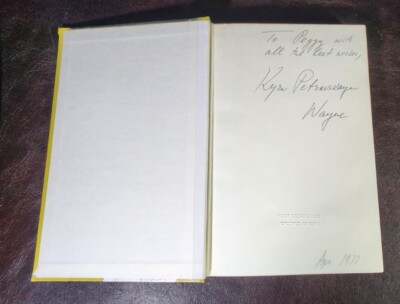 To Peggy with
all the best wishes,
Kyra Petrovskaya
Wayne
1977